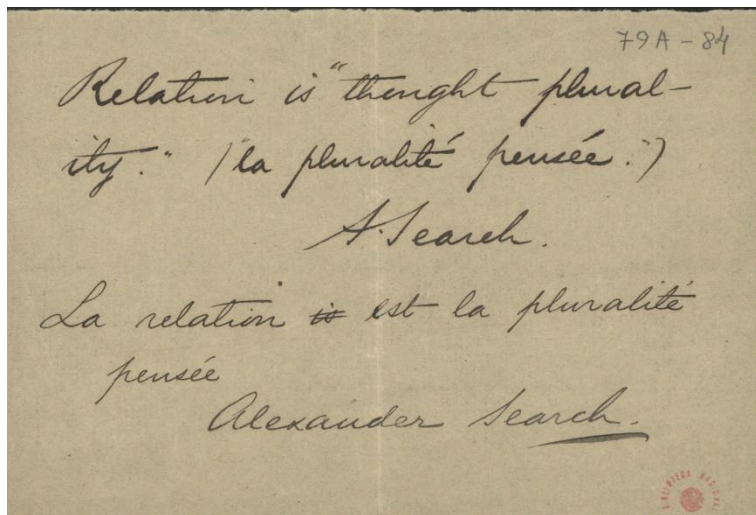 79A-84
Relation is "thought plural-
ity." ("la pluralité pensée.")
A. Search.
La relation is est la pluralité
pensée
Alexander Search.
BIBLIOTECA NACIONAL